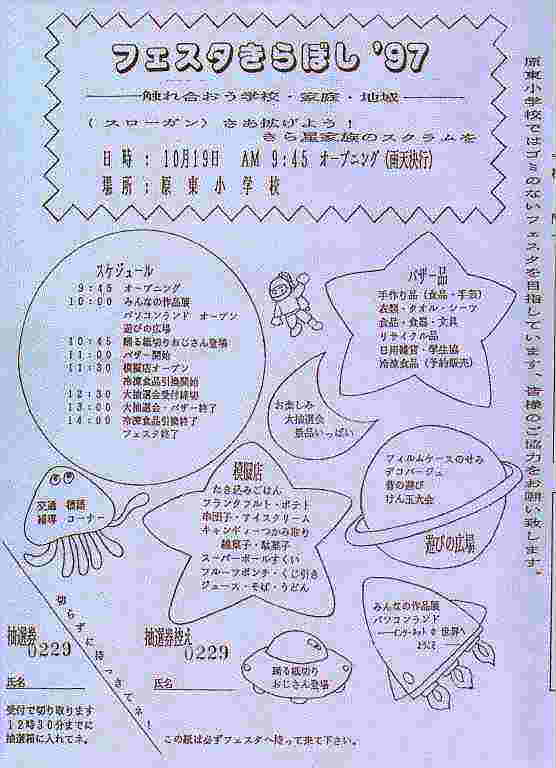 フェスタきらぼし '97
触れ合おう学校・家庭・地域
（スローガン）さあ拡げよう！
きら星家族のスクラムを
日時：10月19日 AM 9:45 オープニング(雨天決行)
場所；原東小学校
原東小学校ではゴミのないフェスタを目指しています。皆様のご協力をお願い致します。
スケジュール
9:45 オープニング
10:00 みんなの作品展
パソコンランド オープン
遊びの広場
10:45 踊る紙切りおじさん登場
11:00 バザー開始
11:30 模擬店オープン
冷凍食品引換開始
12:30 大抽選会受付締切
13:00 大抽選会・バザー終了
14:00 冷凍食品引換終了
フェスタ終了
バザー品
手作り品（食品・手芸）
衣類・タオル・シーツ
食品・食器・文具
リサイクル品
日用雑貨・学生協
冷凍食品（予約販売）
お楽しみ
大抽選会
景品いっぱい
フィルムケースのせみ
デコパージュ
昔の遊び
けん玉大会
遊びの広場
交通 標語
補導 コーナー
模擬店
たき込みごはん
フランクフルト・ポテト
串団子・アイスクリーム
キャンディーつかみ取り
綿菓子・駄菓子
スーパーボールすくい
フルーツポンチ・くじ引き
ジュース・そば・うどん
みんなの作品展
パソコンランド
インターネットで世界へ
ようこそ
踊る紙切り
おじさん登場
切らずに持ってきてネ！
抽選券
0229
氏名
抽選券控え
0229
氏名
受付で切り取ります
12時30分までに
抽選箱に入れてネ。
この紙は必ずフェスタへ持って来て下さい。